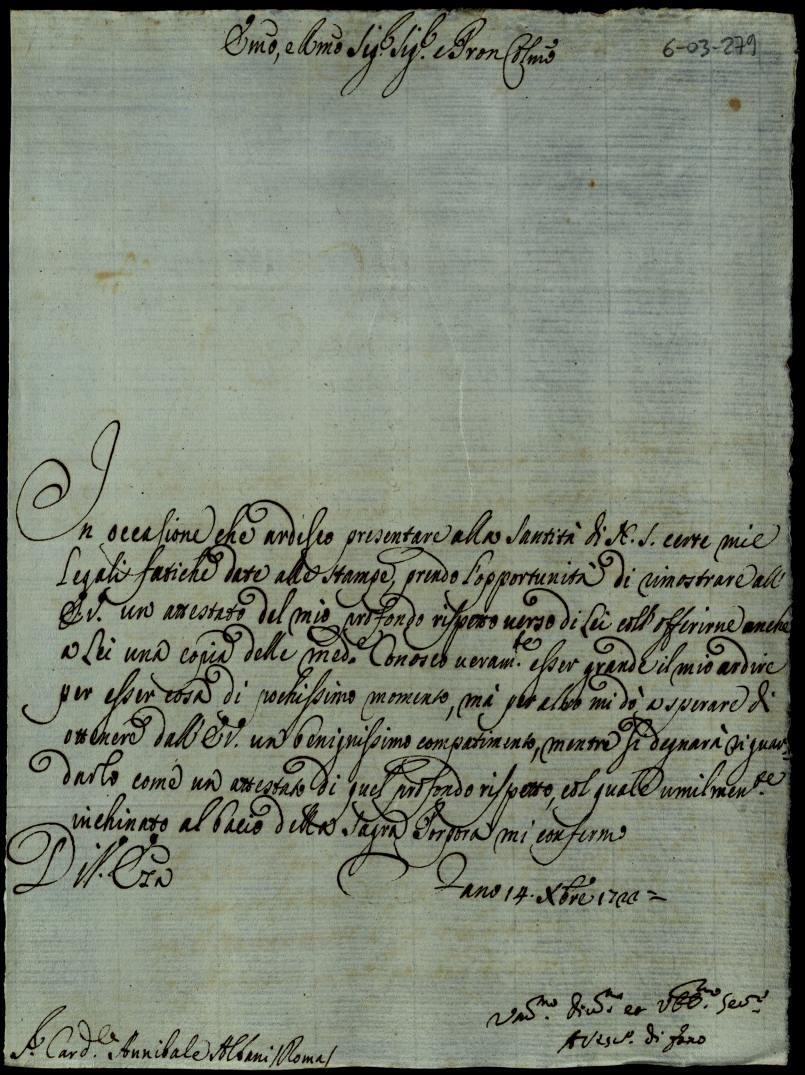 Emo, e Rmo Sig.r Sig.r e Pron Colmo
6-03-279
In occasione che ardisco presentare alla Santità di N. S. certe mie
Legali fatiche date alle stampe, prendo l'opportunità di rimostrare all'
E.V. un attestato del mio profondo rispetto verso di Lei coll'offerirne anche
a Lei una copia delle med.e Conosco veram.te esser grande il mio ardire
per esser cosa di pochissimo momento, mà per altro mi dò a sperare di
ottenere dall'E.V. un benignissimo compatimento, mentre si degnarà riguar-
darlo come un attestato di quel profondo rispetto, col quale umilmen.te
inchinato al bacio della Sagra Porpora mi confermo
Di V. Eza
Fano 14. Xbre 1722 =
Um.mo Div.mo et Obb.mo Ser.re
A Vesc.o di Fano
S.r Card.le Annibale Albani /Roma/